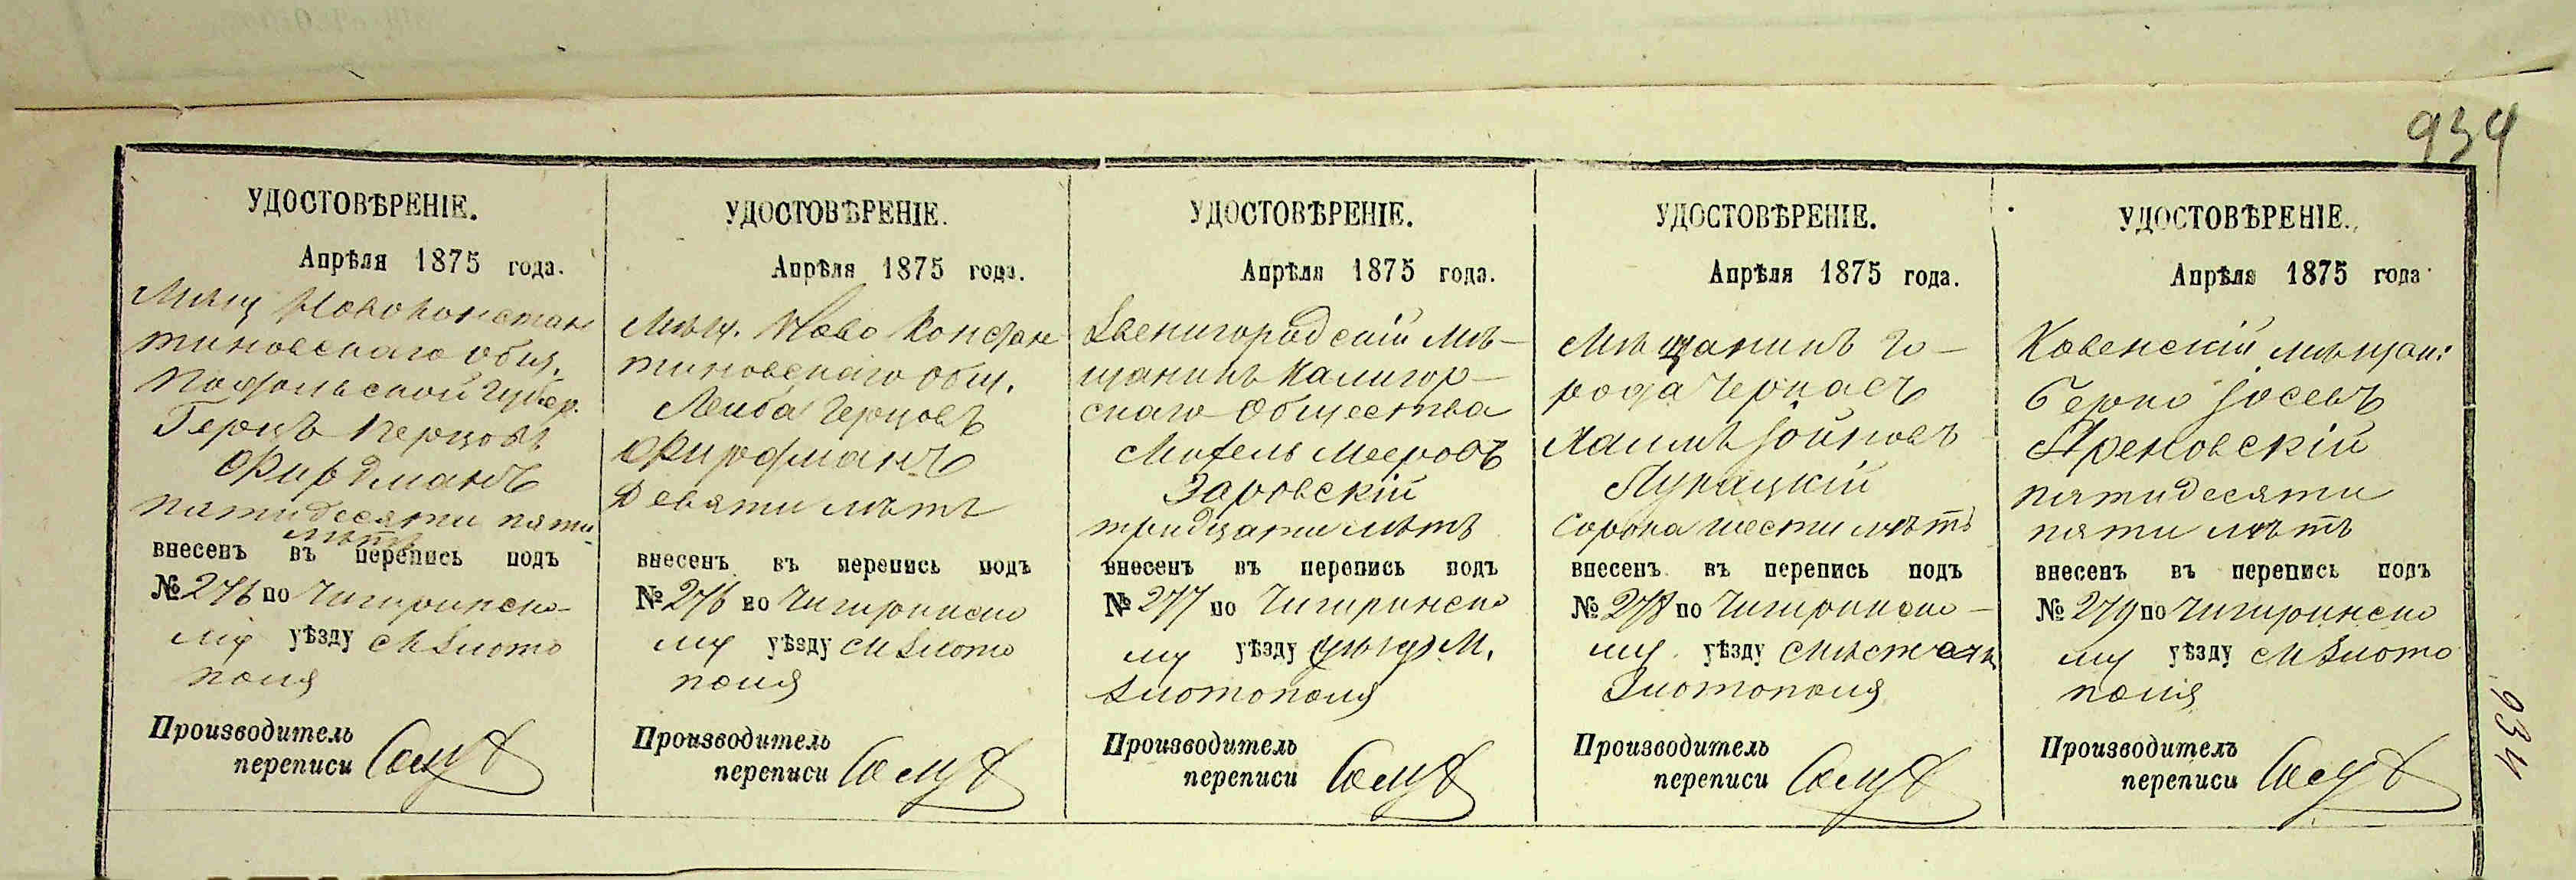 934
УДОСТОВѢРЕНІЕ.
Апрѣля 1875 года.
Мѣщ Новоконстан
тиновскаго общ.
Подольской губер.
Герцъ Перцовъ
Фирдманъ
пятидесяти пяти
лѣтъ
внесенъ въ перепись подъ
№ 276 по Чигиринско-
му уѣзду М Златопо
поля
Производитель
переписи
УДОСТОВѢРЕНІЕ.
Апрѣля 1875 года.
Мѣщ. Ново Констан
тиновскаго общ.
Лейба Герцовъ
Фирдманъ
Девяти лѣтъ
внесенъ въ перепись подъ
№ 276 по Чигиринско
му уѣзду М Злато
поля
Производитель
переписи
УДОСТОВѢРЕНІЕ.
Апрѣля 1875 года.
Звенигородскій мѣ-
щанинъ Калигор-
скаго Общества
Мотель Мееровъ
Заровскій
тридцати лѣтъ
внесенъ въ перепись подъ
№ 277 по Чигиринско
му уѣзду уѣзду М.
Златополя
Производитель
переписи
УДОСТОВѢРЕНІЕ.
Апрѣля 1875 года.
Мѣщанинъ го-
рода Черкасъ
Хаимъ Іойновъ
Лунацкій
Сорока шести лѣтъ
внесенъ въ перепись подъ
№ 278 по Чигиринско-
му уѣзду
Златополя
Производитель
переписи
УДОСТОВѢРЕНІЕ.
Апрѣля 1875 года
Ковенскій мѣщан:
Берко Іосевъ
Яреновскій
пятидесяти
пяти лѣтъ
внесенъ въ перепись подъ
№ 279 по Чигиринско
му уѣзду М Злато
поля
Производитель
переписи
934